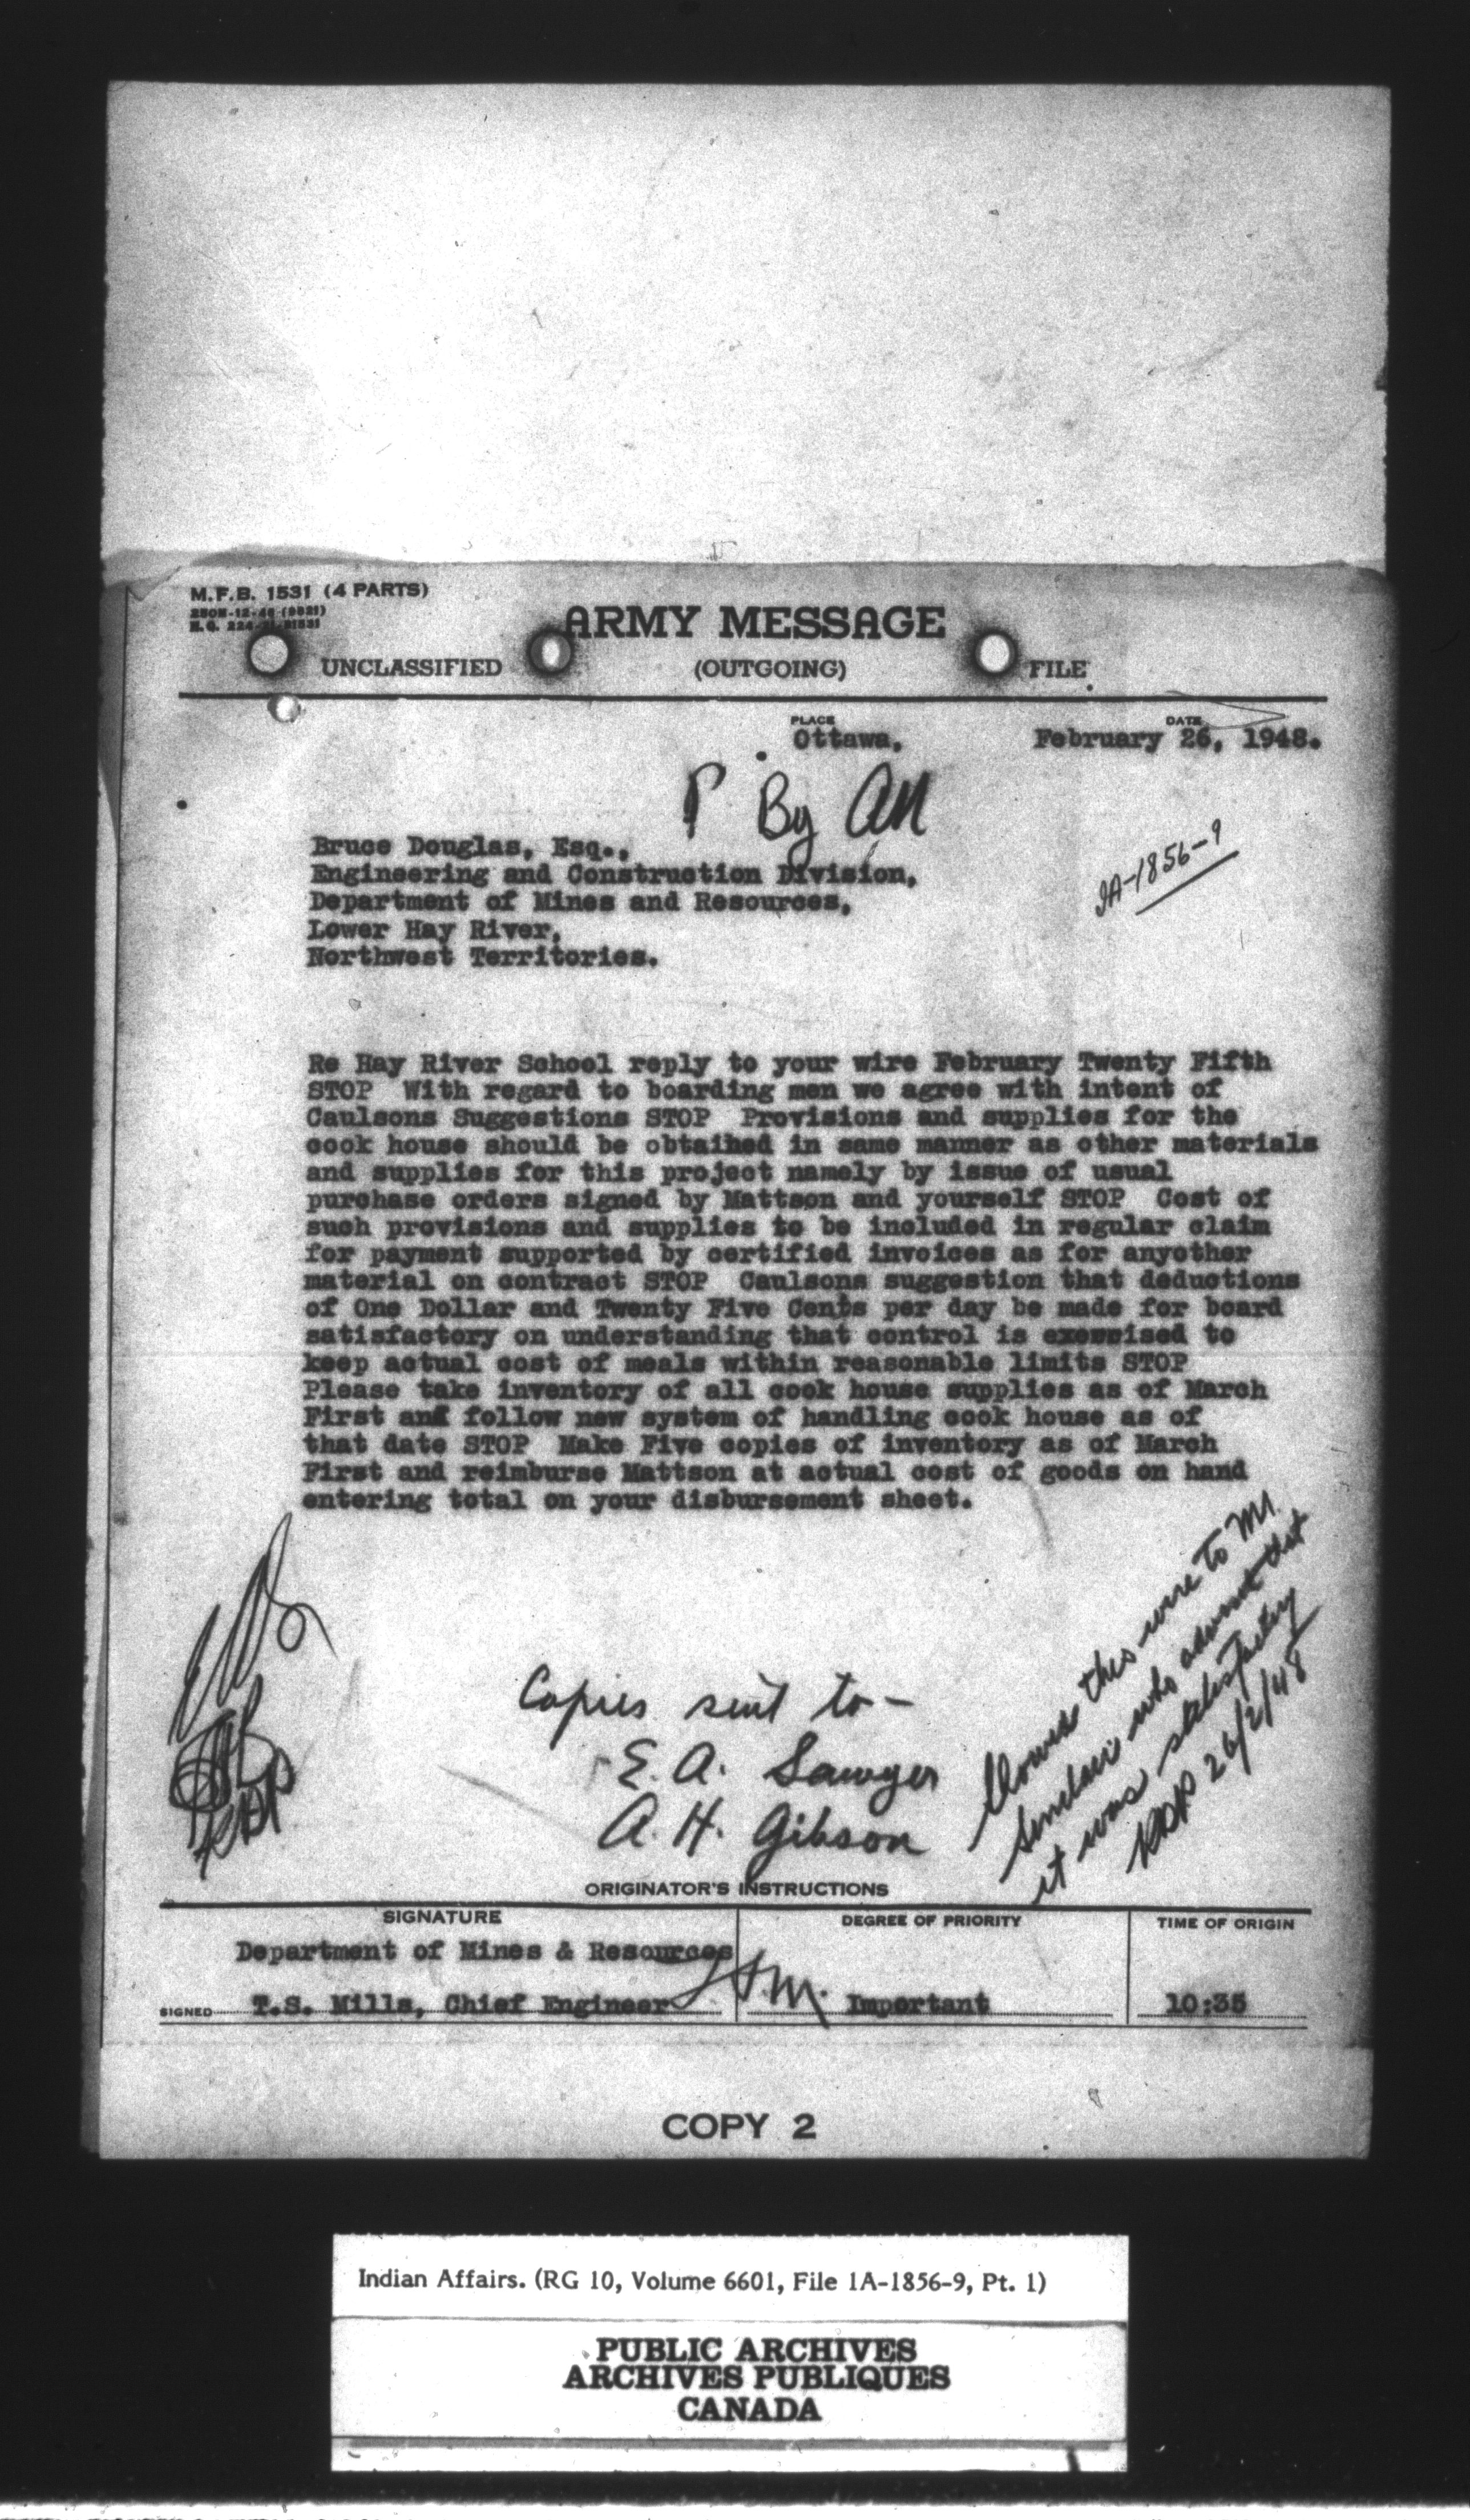 M.F.B. 1531 (4 PARTS)
250M-12-46 (9821)
ARMY MESSAGE
UNCLASSIFIED (OUTGOING) FILE
PLACE DATE
Ottawa, February 26, 1948.
P By
1A-1856-9
Bruce Douglas, Esq.,
Engineering and Construction Division,
Department of Mines and Resources,
Lower Hay River,
Northwest Territories.
Re Hay River School reply to your wire February Twenty Fifth
STOP With regard to boarding men we agree with intent of
Caulsons Suggestions STOP Provisions and supplies for the
cook house should be obtained in same manner as other materials
and supplies for this project namely by issue of usual
purchase orders signed by Mattson and yourself STOP Cost of
such provisions and supplies to be included in regular claim
for payment supported by certified invoices as for anyother
material on contract STOP Caulsons suggestion that deductions
of One Dollar and Twenty Five Cents per day be made for board
satisfactory on understanding that control is exercised to
keep actual cost of meals within reasonable limits STOP
Please take inventory of all cook house supplies as of March
First and follow new system of handling cook house as of
that date STOP Make Five copies of inventory as of March
First and reimburse Mattson at actual cost of goods on hand
entering total on your disbursement sheet.
Copies sent to-
E. A. Sawyer
A. H. Gibson
Showed this wire to Mr.
Sinclair who advised that
it was satisfactory
26/2/48
ORIGINATOR'S INSTRUCTIONS
SIGNATURE DEGREE OF PRIORITY TIME OF ORIGIN
Department of Mines & Resources
SIGNED T.S. Mills, Chief Engineer Important 10:35
COPY 2
Indian Affairs. (RG 10, Volume 6601, File 1A-1856-9, Pt. 1)
PUBLIC ARCHIVES
ARCHIVES PUBLIQUES
CANADA